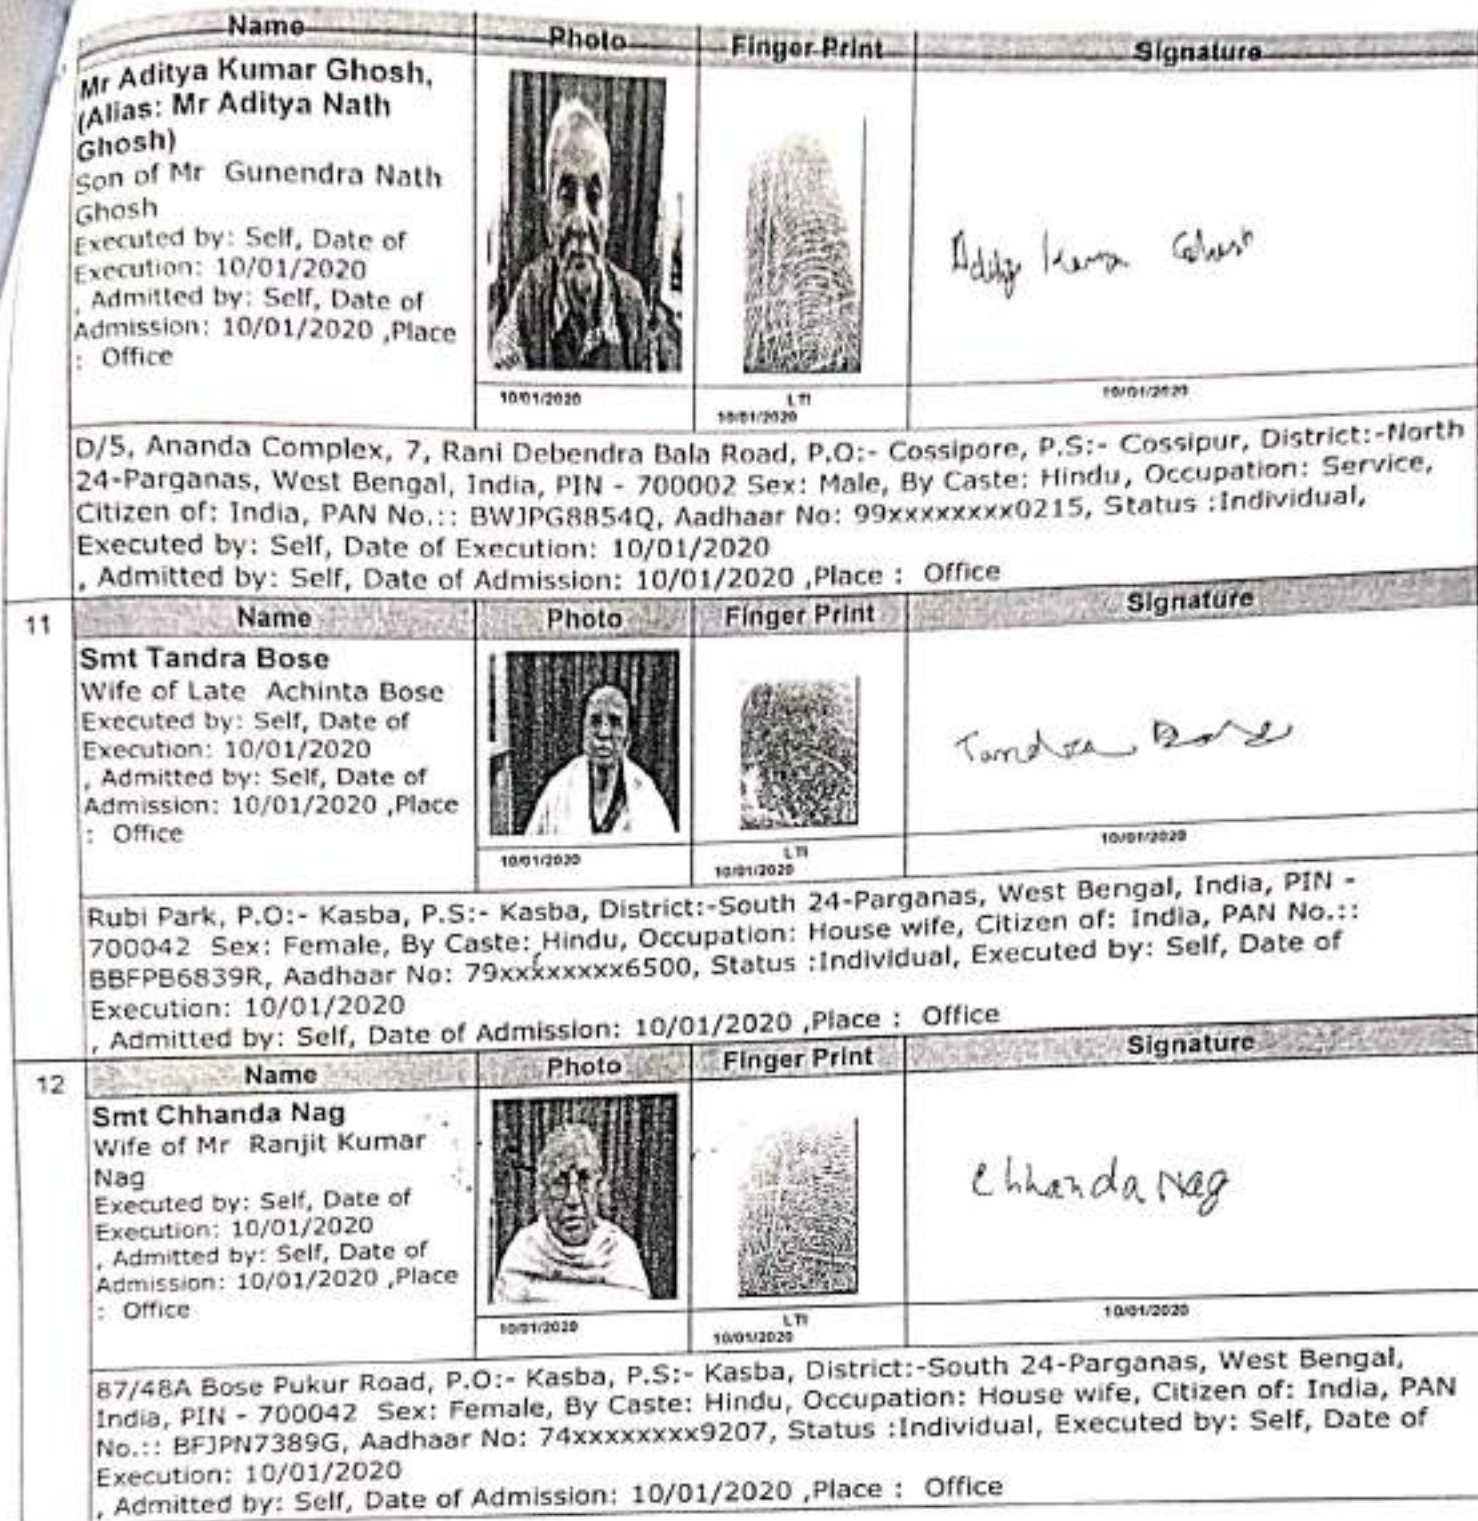 Name Photo Finger Print Signature
Mr Aditya Kumar Ghosh,
(Alias: Mr Aditya Nath
Ghosh)
Son of Mr Gunendra Nath
Ghosh
Executed by: Self, Date of
Execution: 10/01/2020
, Admitted by: Self, Date of
Admission: 10/01/2020 ,Place
: Office
Kumar Ghosh
10/01/2020 LTI 10/01/2020
10/01/2020
D/5, Ananda Complex, 7, Rani Debendra Bala Road, P.O:- Cossipore, P.S:- Cossipur, District:-North
24-Parganas, West Bengal, India, PIN - 700002 Sex: Male, By Caste: Hindu, Occupation: Service,
Citizen of: India, PAN No.:: BWJPG8854Q, Aadhaar No: 99xxxxxxxx0215, Status :Individual,
Executed by: Self, Date of Execution: 10/01/2020
, Admitted by: Self, Date of Admission: 10/01/2020 ,Place : Office
11 Name Photo Finger Print Signature
Smt Tandra Bose
Wife of Late Achinta Bose
Executed by: Self, Date of
Execution: 10/01/2020
, Admitted by: Self, Date of
Admission: 10/01/2020 ,Place
: Office
Tandra Bose
10/01/2020 LTI 10/01/2020
10/01/2020
Rubi Park, P.O:- Kasba, P.S:- Kasba, District:-South 24-Parganas, West Bengal, India, PIN -
700042 Sex: Female, By Caste: Hindu, Occupation: House wife, Citizen of: India, PAN No.::
BBFPB6839R, Aadhaar No: 79xxxxxxxx6500, Status :Individual, Executed by: Self, Date of
Execution: 10/01/2020
, Admitted by: Self, Date of Admission: 10/01/2020 ,Place : Office
12 Name Photo Finger Print Signature
Smt Chhanda Nag
Wife of Mr Ranjit Kumar
Nag
Executed by: Self, Date of
Execution: 10/01/2020
, Admitted by: Self, Date of
Admission: 10/01/2020 ,Place
: Office
Chhanda Nag
10/01/2020 LTI 10/01/2020
10/01/2020
87/48A Bose Pukur Road, P.O:- Kasba, P.S:- Kasba, District:-South 24-Parganas, West Bengal,
India, PIN - 700042 Sex: Female, By Caste: Hindu, Occupation: House wife, Citizen of: India, PAN
No.:: BFJPN7389G, Aadhaar No: 74xxxxxxxx9207, Status :Individual, Executed by: Self, Date of
Execution: 10/01/2020
, Admitted by: Self, Date of Admission: 10/01/2020 ,Place : Office